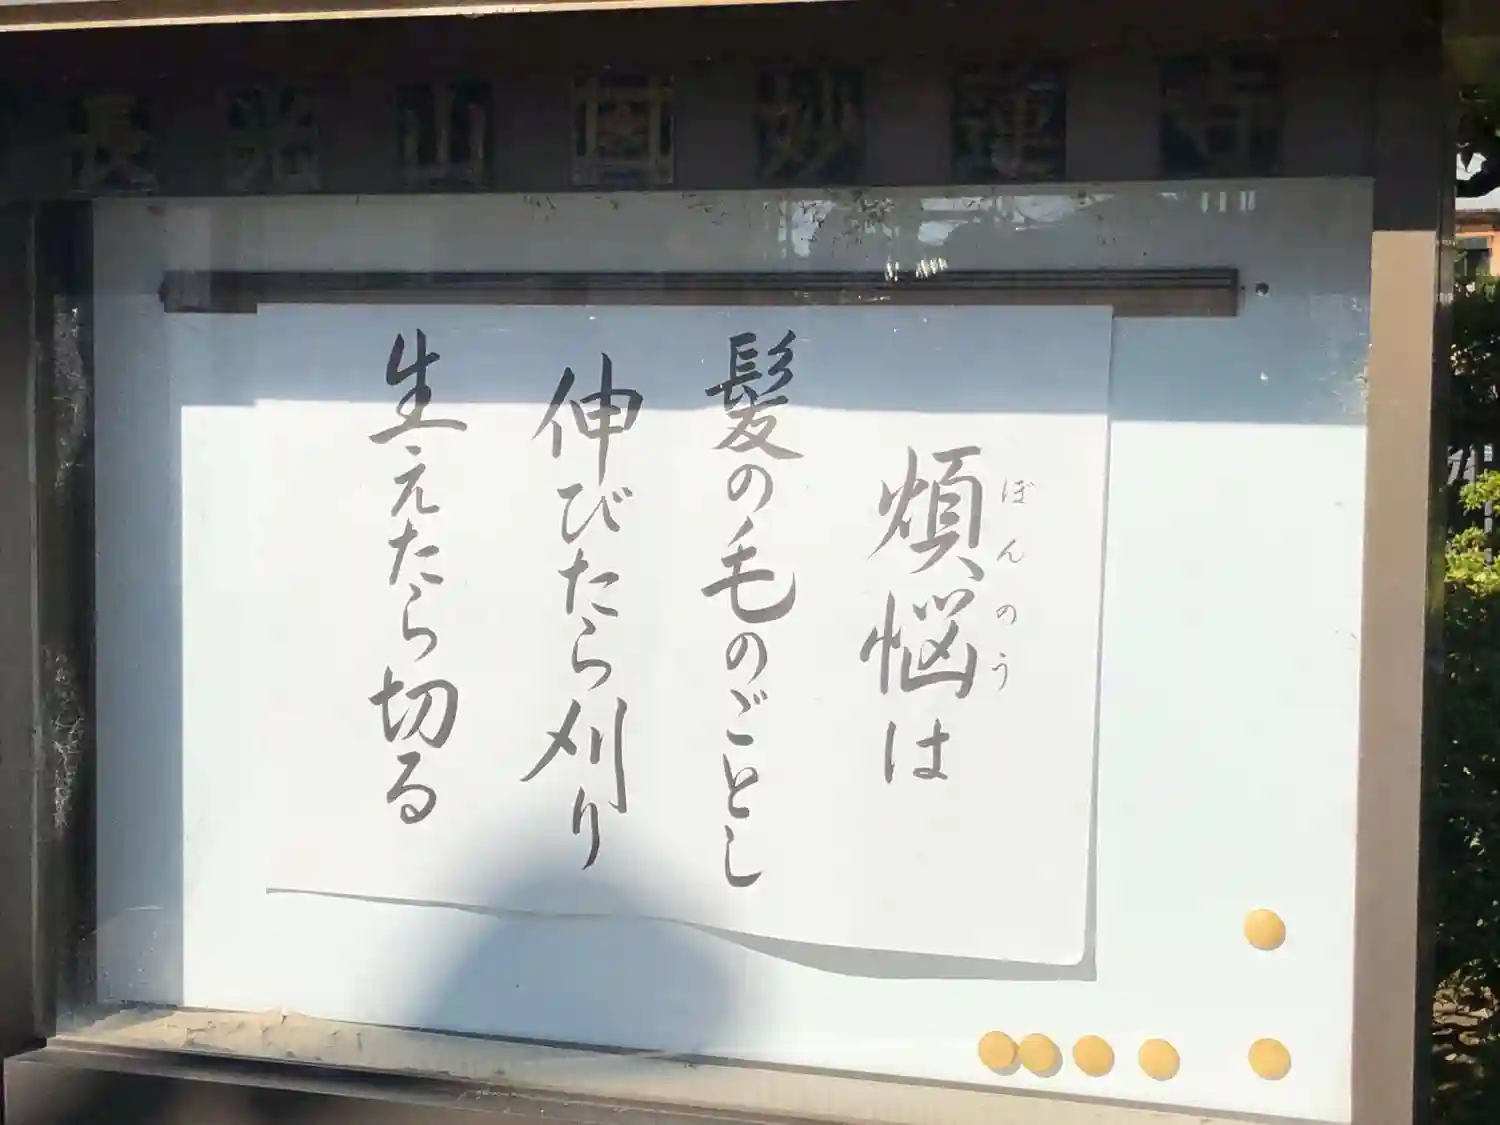 長光山 妙蓮寺
煩悩は
ぼんのう
髪の毛のごとし
伸びたら刈り
生えたら切る